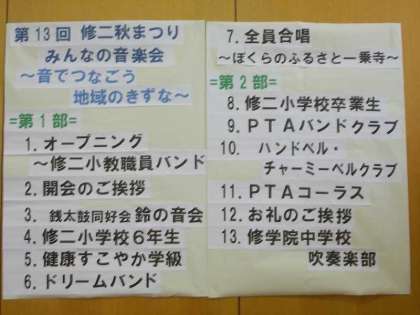 第13回 修二秋まつり
みんなの音楽会
～音でつなごう
地域のきずな～
=第1部=
1. オープニング
～修二小教職員バンド
2. 開会のご挨拶
3. 銭太鼓同好会 鈴の音会
4. 修二小学校6年生
5. 健康すこやか学級
6. ドリームバンド
7. 全員合唱
～ぼくらのふるさと一乗寺～
=第2部=
8. 修二小学校卒業生
9. PTAバンドクラブ
10. ハンドベル・
チャーミーベルクラブ
11. PTAコーラス
12. お礼のご挨拶
13. 修学院中学校
吹奏楽部